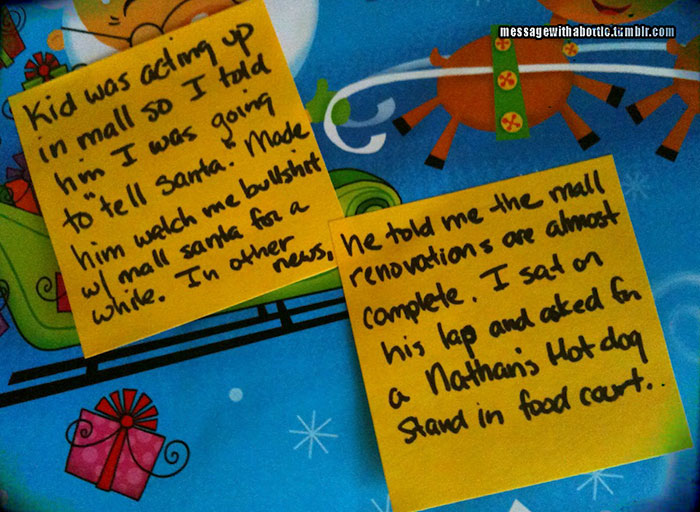 messagewithabottle.tumblr.com
Kid was acting up
in mall so I told
him I was going
to "tell Santa." Made
him watch me bullshit
w/ mall santa for a
while. In other
news,
he told me the mall
renovations are almost
complete. I sat on
his lap and asked for
a Nathan's Hot dog
stand in food court..